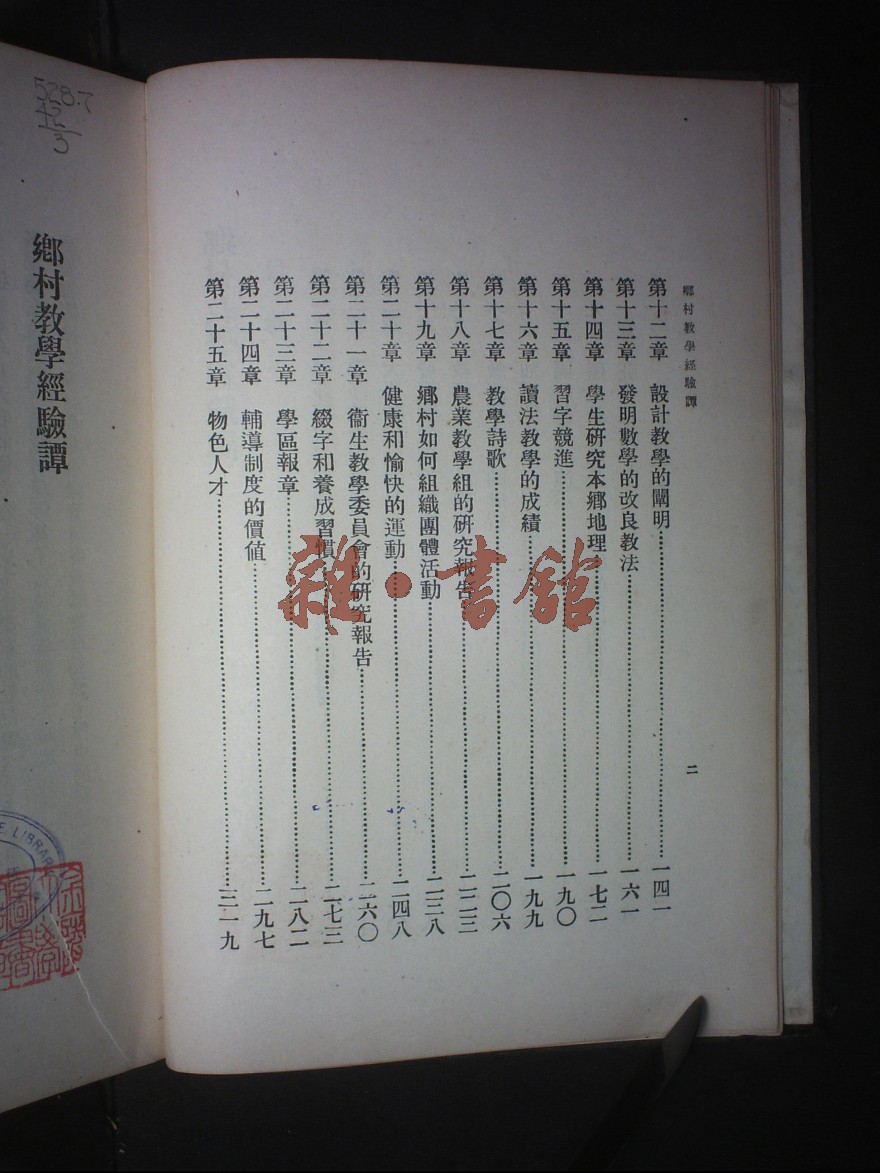 鄉村教學經驗譚
二
第十二章 設計教學的闡明……一四一
第十三章 發明數學的改良教法……一六一
第十四章 學生研究本鄉地理……一七二
第十五章 習字競進……一九〇
第十六章 讀法教學的成績……一九九
第十七章 教學詩歌……二〇六
第十八章 農業教學組的研究報告……二二三
第十九章 鄉村如何組織團體活動……二三八
第二十章 健康和愉快的運動……二四八
第二十一章 衞生教學委員會的研究報告……二六〇
第二十二章 綴字和養成習慣……二七三
第二十三章 學區報章……二八二
第二十四章 輔導制度的價值……二九七
第二十五章 物色人才……三一九
雜·書館
528.7
42
3
鄉村教學經驗譚
LIBRAR